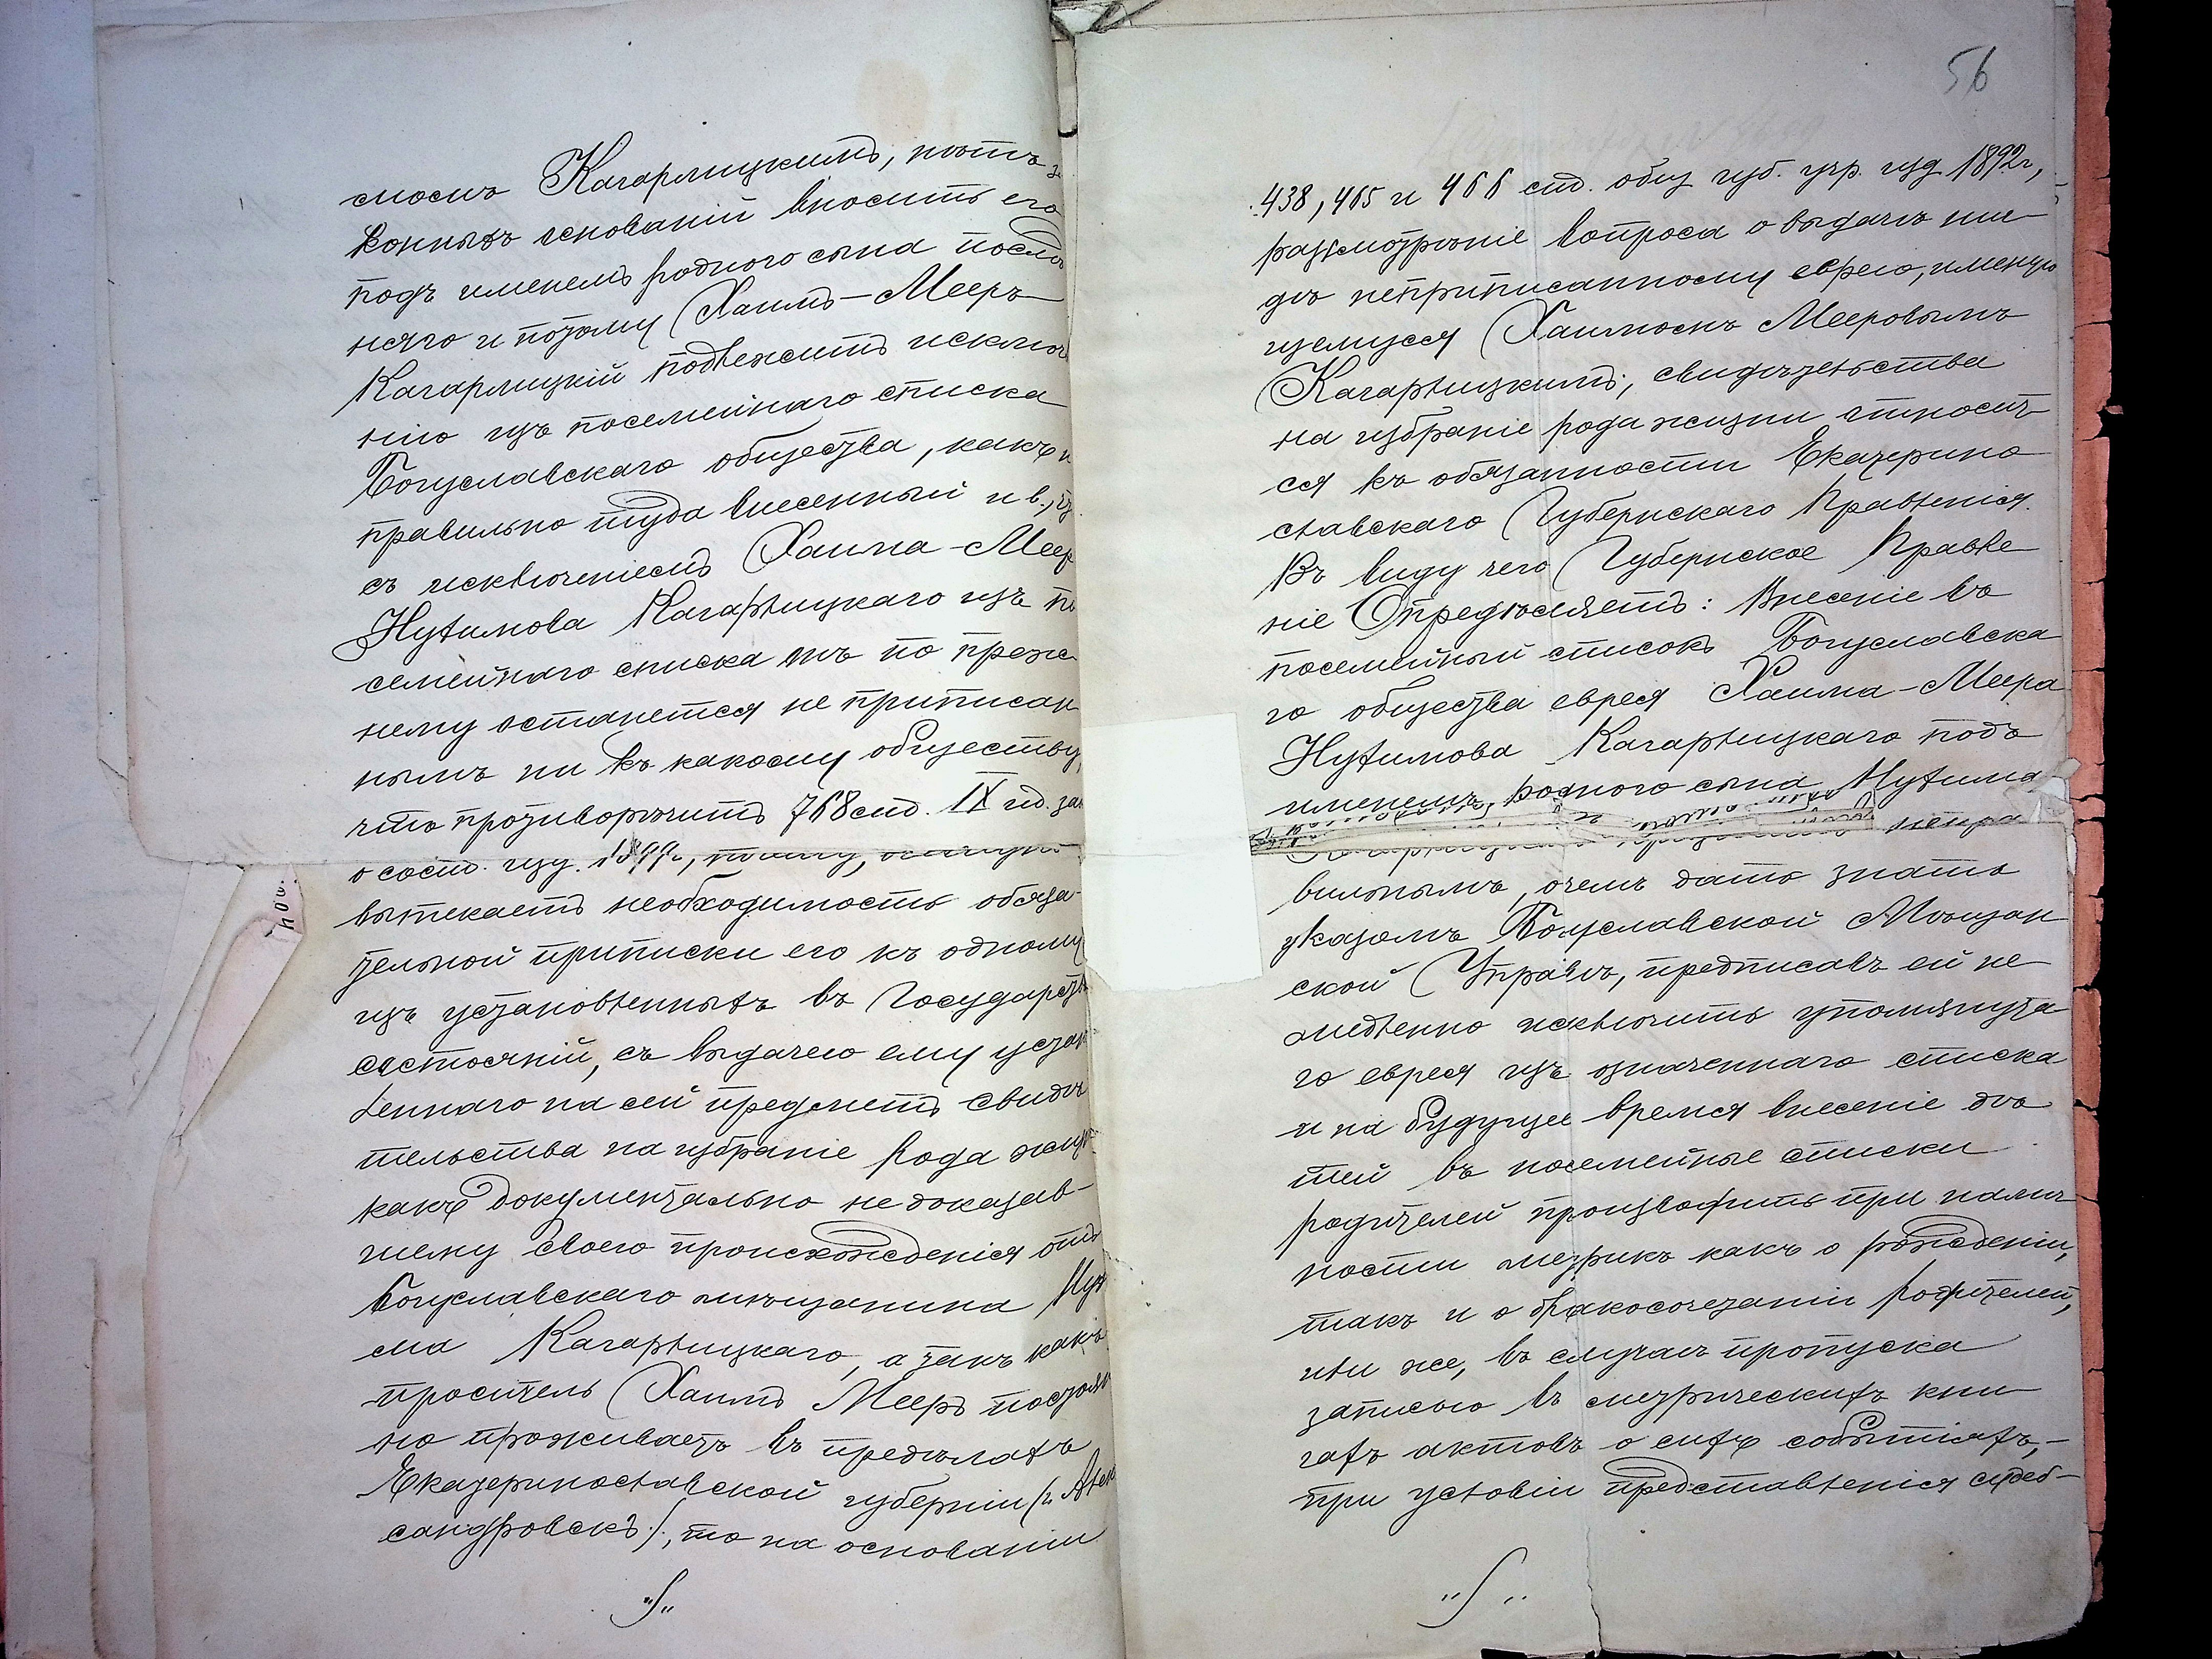 смомъ Кагарлицкимъ, нѣтъ за
конныхъ основаній вносить его
подъ именемъ родного сына послѣд
няго и потому Хаимъ-Мееръ
Кагарлицкій подлежитъ исключе
нію изъ посемейнаго списка
Богуславскаго общества, какъ н
правильно туда внесенный и в.,
съ исключеніемъ Хаима-Меер
Нухимова Кагарлицкаго изъ по
семейнаго списка онъ по преж
нему останется не приписан
нымъ ни къ какому обществу,
что противорѣчитъ 768 ст. IX т. зак
о сост. изд. 1899 г.,
вытекаетъ необходимость обяза-
тельной приписки его къ одному
изъ установленныхъ въ Государств
состояній, съ выдачею ему устан
леннаго на сей предметъ свидѣ
тельства на избраніе рода жизн
какъ документально не доказав-
шему своего происхожденія отъ
Богуславскаго мѣщанина Нух
ма Кагарлицкаго, а такъ какъ
проситель Хаимъ Мееръ постоян
но проживаетъ въ предѣлахъ
Екатеринославской губерніи (г. Алек
сандровскъ), то на основаніи
56
438, 465 и 466 ст. общ. губ. учр. изд. 1892 г.,
разсмотрѣніе вопроса о выдачѣ ни-
гдѣ неприписанному еврею, именую
щемуся Хаимомъ Мееровымъ
Кагарлицкимъ, свидѣтельства
на избраніе рода жизни относит
ся къ обязанности Екатерино
славскаго Губернскаго Правленія.
Въ виду чего Губернское Правле
ніе Опредѣляетъ: Внесеніе въ
посемейный списокъ Богуславска
го общества еврея Хаима-Меера
Нухимова Кагарлицкаго подъ
именемъ родного сына Нухима
непра
вильнымъ, о чемъ дать знать
указомъ Богуславской Мѣщан
ской Управѣ, предписавъ ей не
медленно исключить упомянута
го еврея изъ означеннаго списка
и на будущее время внесеніе дѣ
тей въ посемейные списки
родителей производить при налич
ности метрикъ какъ о рожденіи,
такъ и о бракосочетаніи родителей,
или же, въ случаѣ пропуска
записью въ метрическихъ кни
гахъ актовъ о сихъ событіяхъ,-
при условіи представленія судеб-